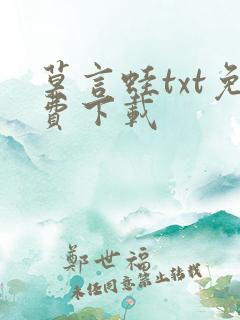 草言蛙txt免
费下载
鄭世福
未经同意禁止转载